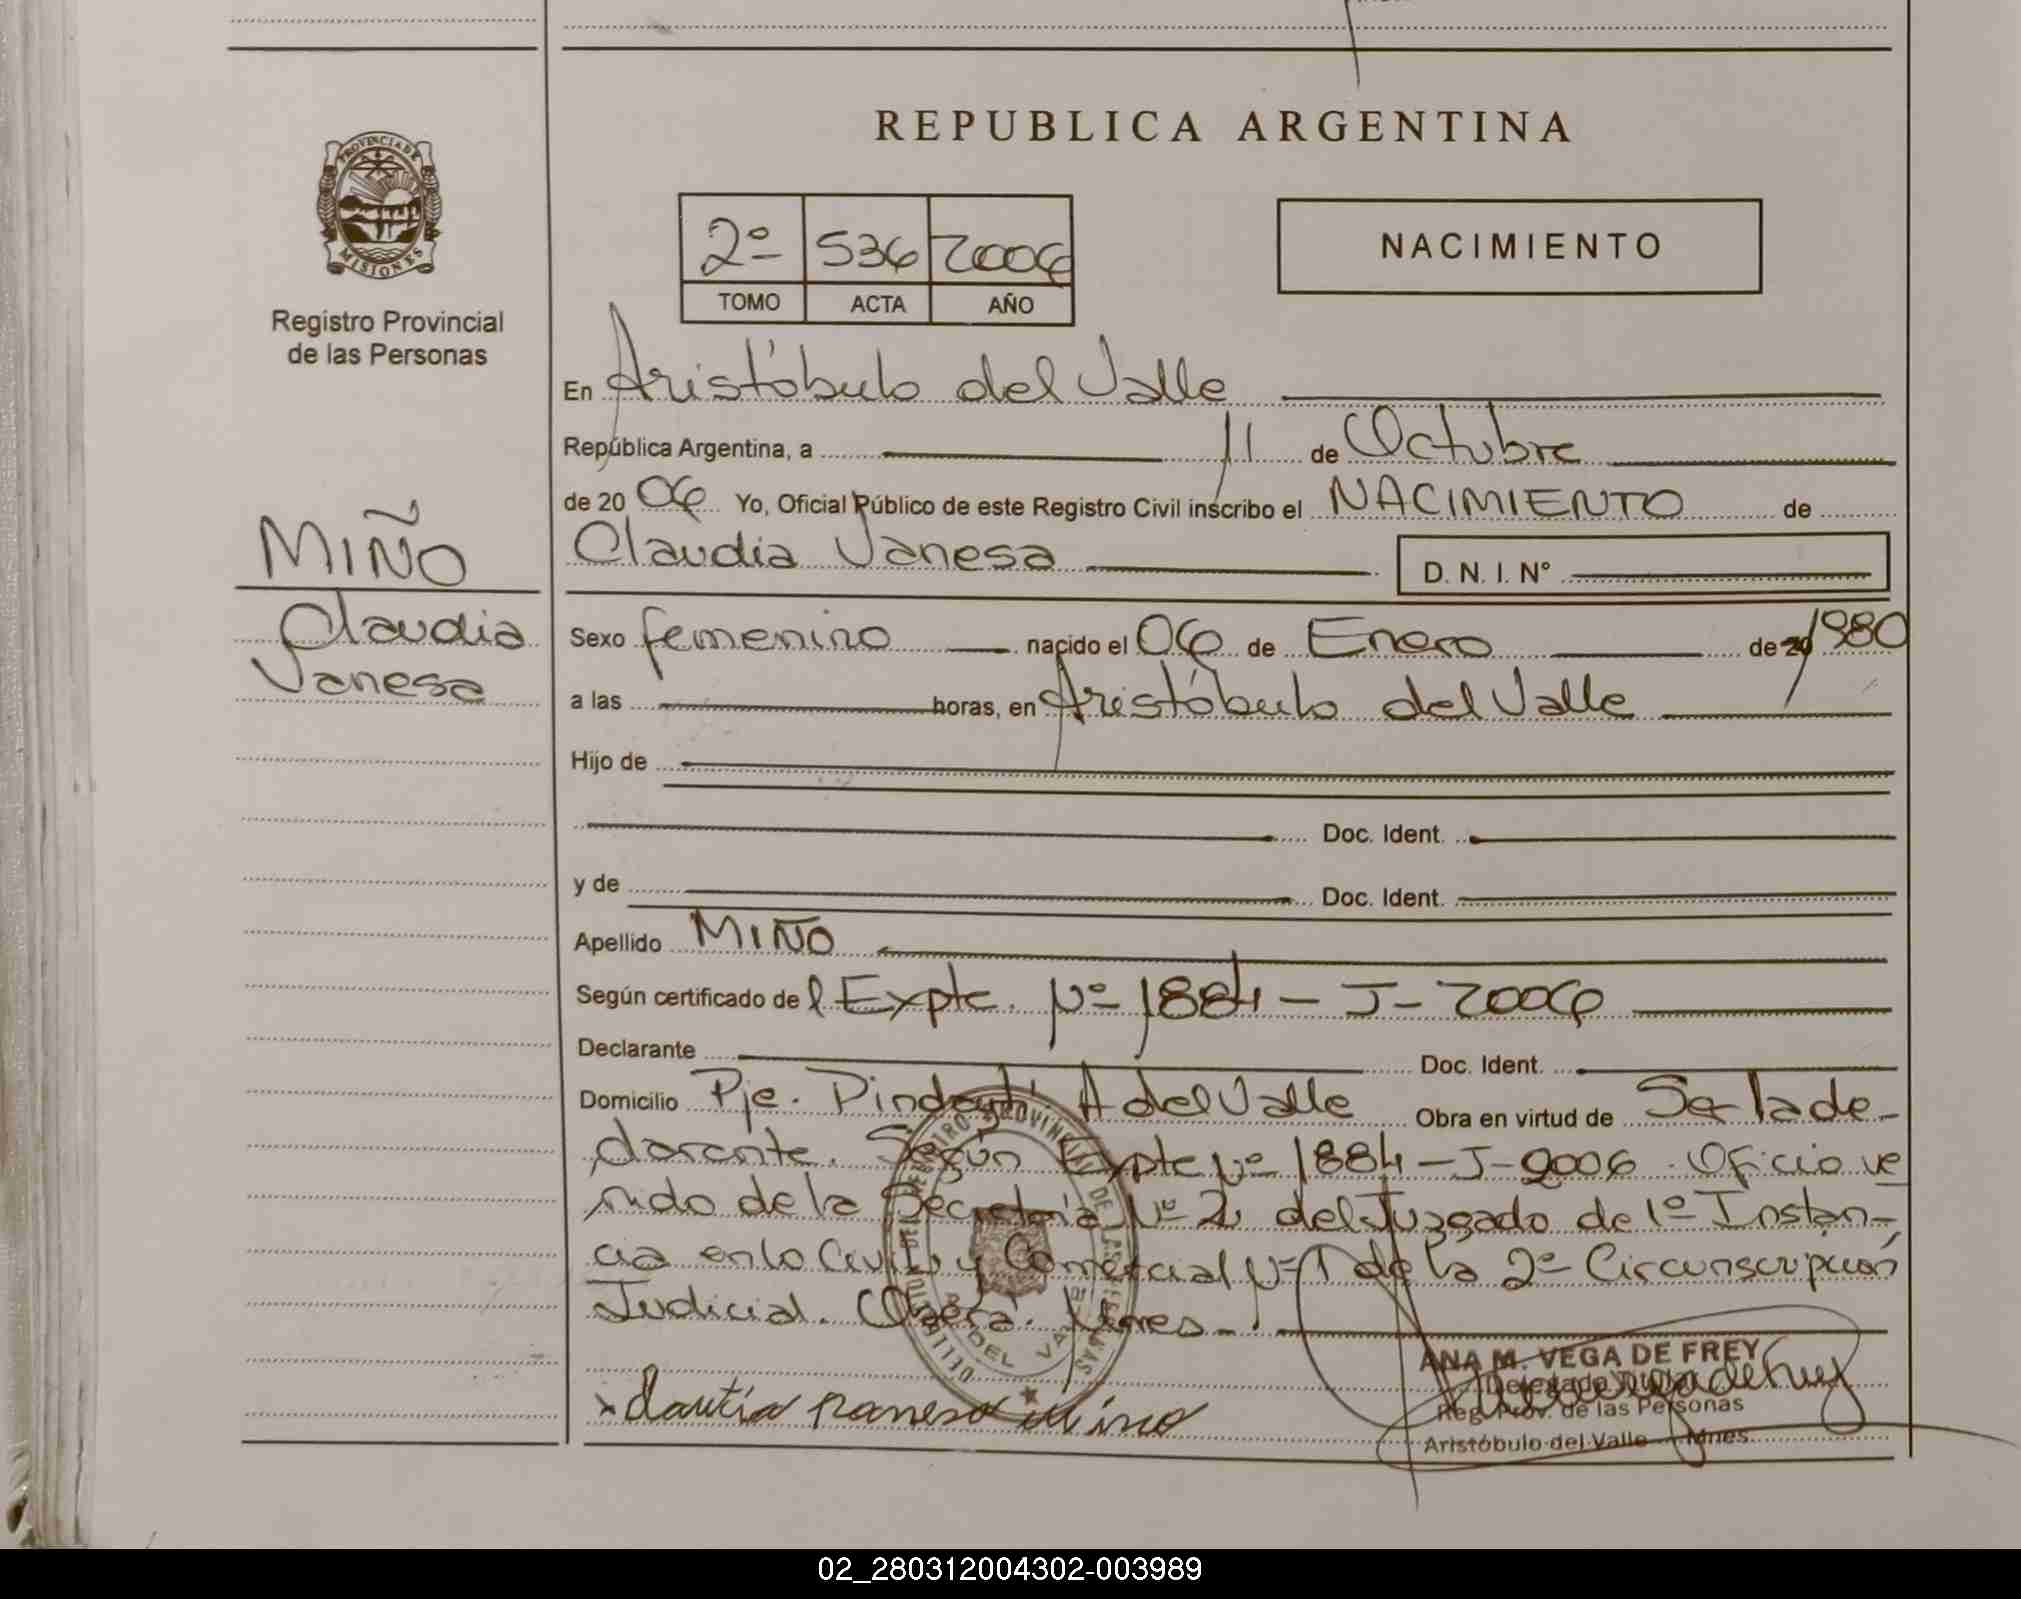 REPUBLICA ARGENTINA
PROVINCIA DE
MISIONES
Registro Provincial
de las Personas
2º 536 2006
TOMO ACTA AÑO
NACIMIENTO
En Aristóbulo del Valle
República Argentina, a 11 de Octubre
de 20 06 Yo, Oficial Público de este Registro Civil inscribo el NACIMIENTO de
Claudia Vanesa D. N. I. Nº
MIÑO
Claudia
Vanesa
Sexo femenino nacido el 06 de Enero de 20 1980
a las horas, en Aristóbulo del Valle
Hijo de
Doc. Ident.
y de Doc. Ident.
Apellido MIÑO
Según certificado de l Expte. Nº 1884 - J - 2006
Declarante Doc. Ident.
Domicilio Pje. Pindayti A del Valle Obra en virtud de Ser la de-
clarante. Según Expte Nº 1884 - J - 2006. Oficio ve
nido de la Secretaría Nº 2 del Juzgado de 1º Instan-
cia en lo Civil y Comercial Nº 1 de la 2º Circunscripción
Judicial. Oberá. Mnes.
ANA M. VEGA DE FREY
Delegada Titular
Reg. Prov. de las Personas
Aristóbulo del Valle - Mnes.
02_280312004302-003989